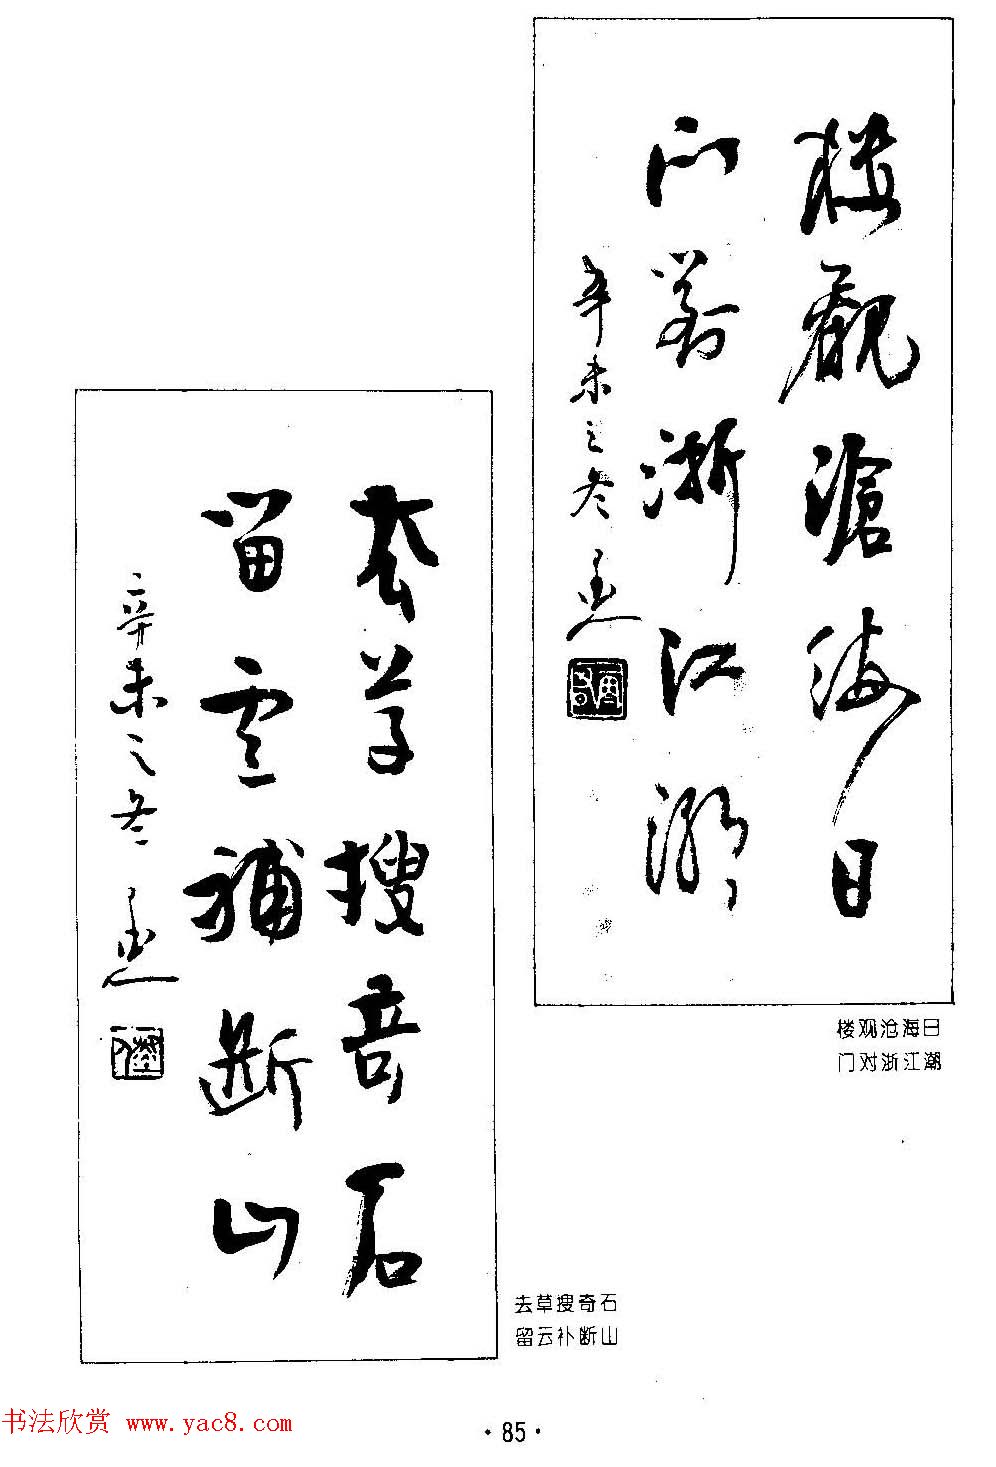 樓觀滄海日
门對浙江潮
辛未之冬
楼观沧海日
门对浙江潮
去草搜奇石
留雲補断山
辛未之冬
去草搜奇石
留云补断山
书法欣赏 www.yac8.com
·85·